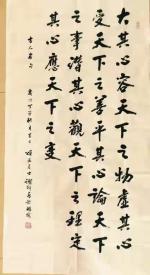 大其心容天下之物虛其心
受天下之善平其心論天下
之事潛其心觀天下之理定
其心應天下之變
古人名句